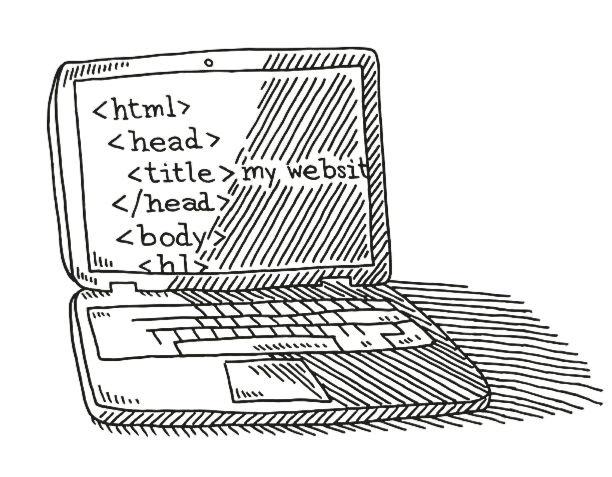 <html>
<head>
<title>my websit
</head>
<body>
<hl>